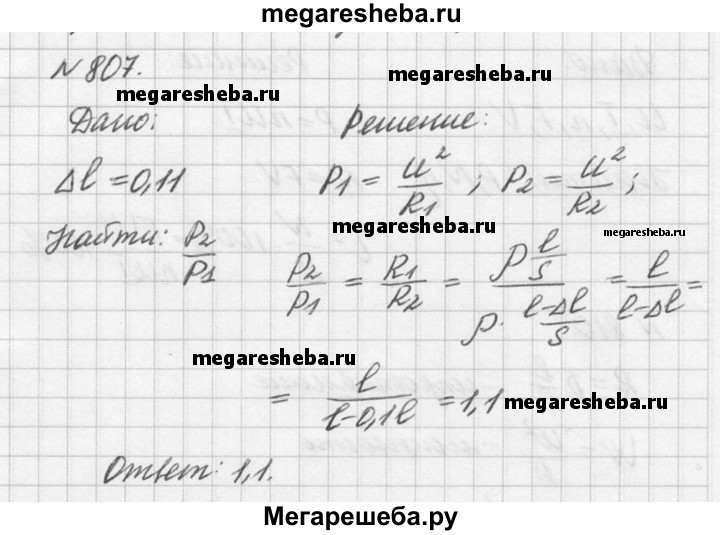 megaresheba.ru
N 807.
megaresheba.ru
megaresheba.ru
Дано:
Решение:
Δl = 0,1l
P1 = U²/R1 ; P2 = U²/R2 ;
megaresheba.ru
megaresheba.ru
Найти: P2/P1
P2/P1 = R1/R2 = (ρ l/S)/(ρ · (l-Δl)/S) = l/(l-Δl) =
megaresheba.ru
= l/(l-0,1l) = 1,1
megaresheba.ru
Ответ: 1,1.
Мегарешеба.ру